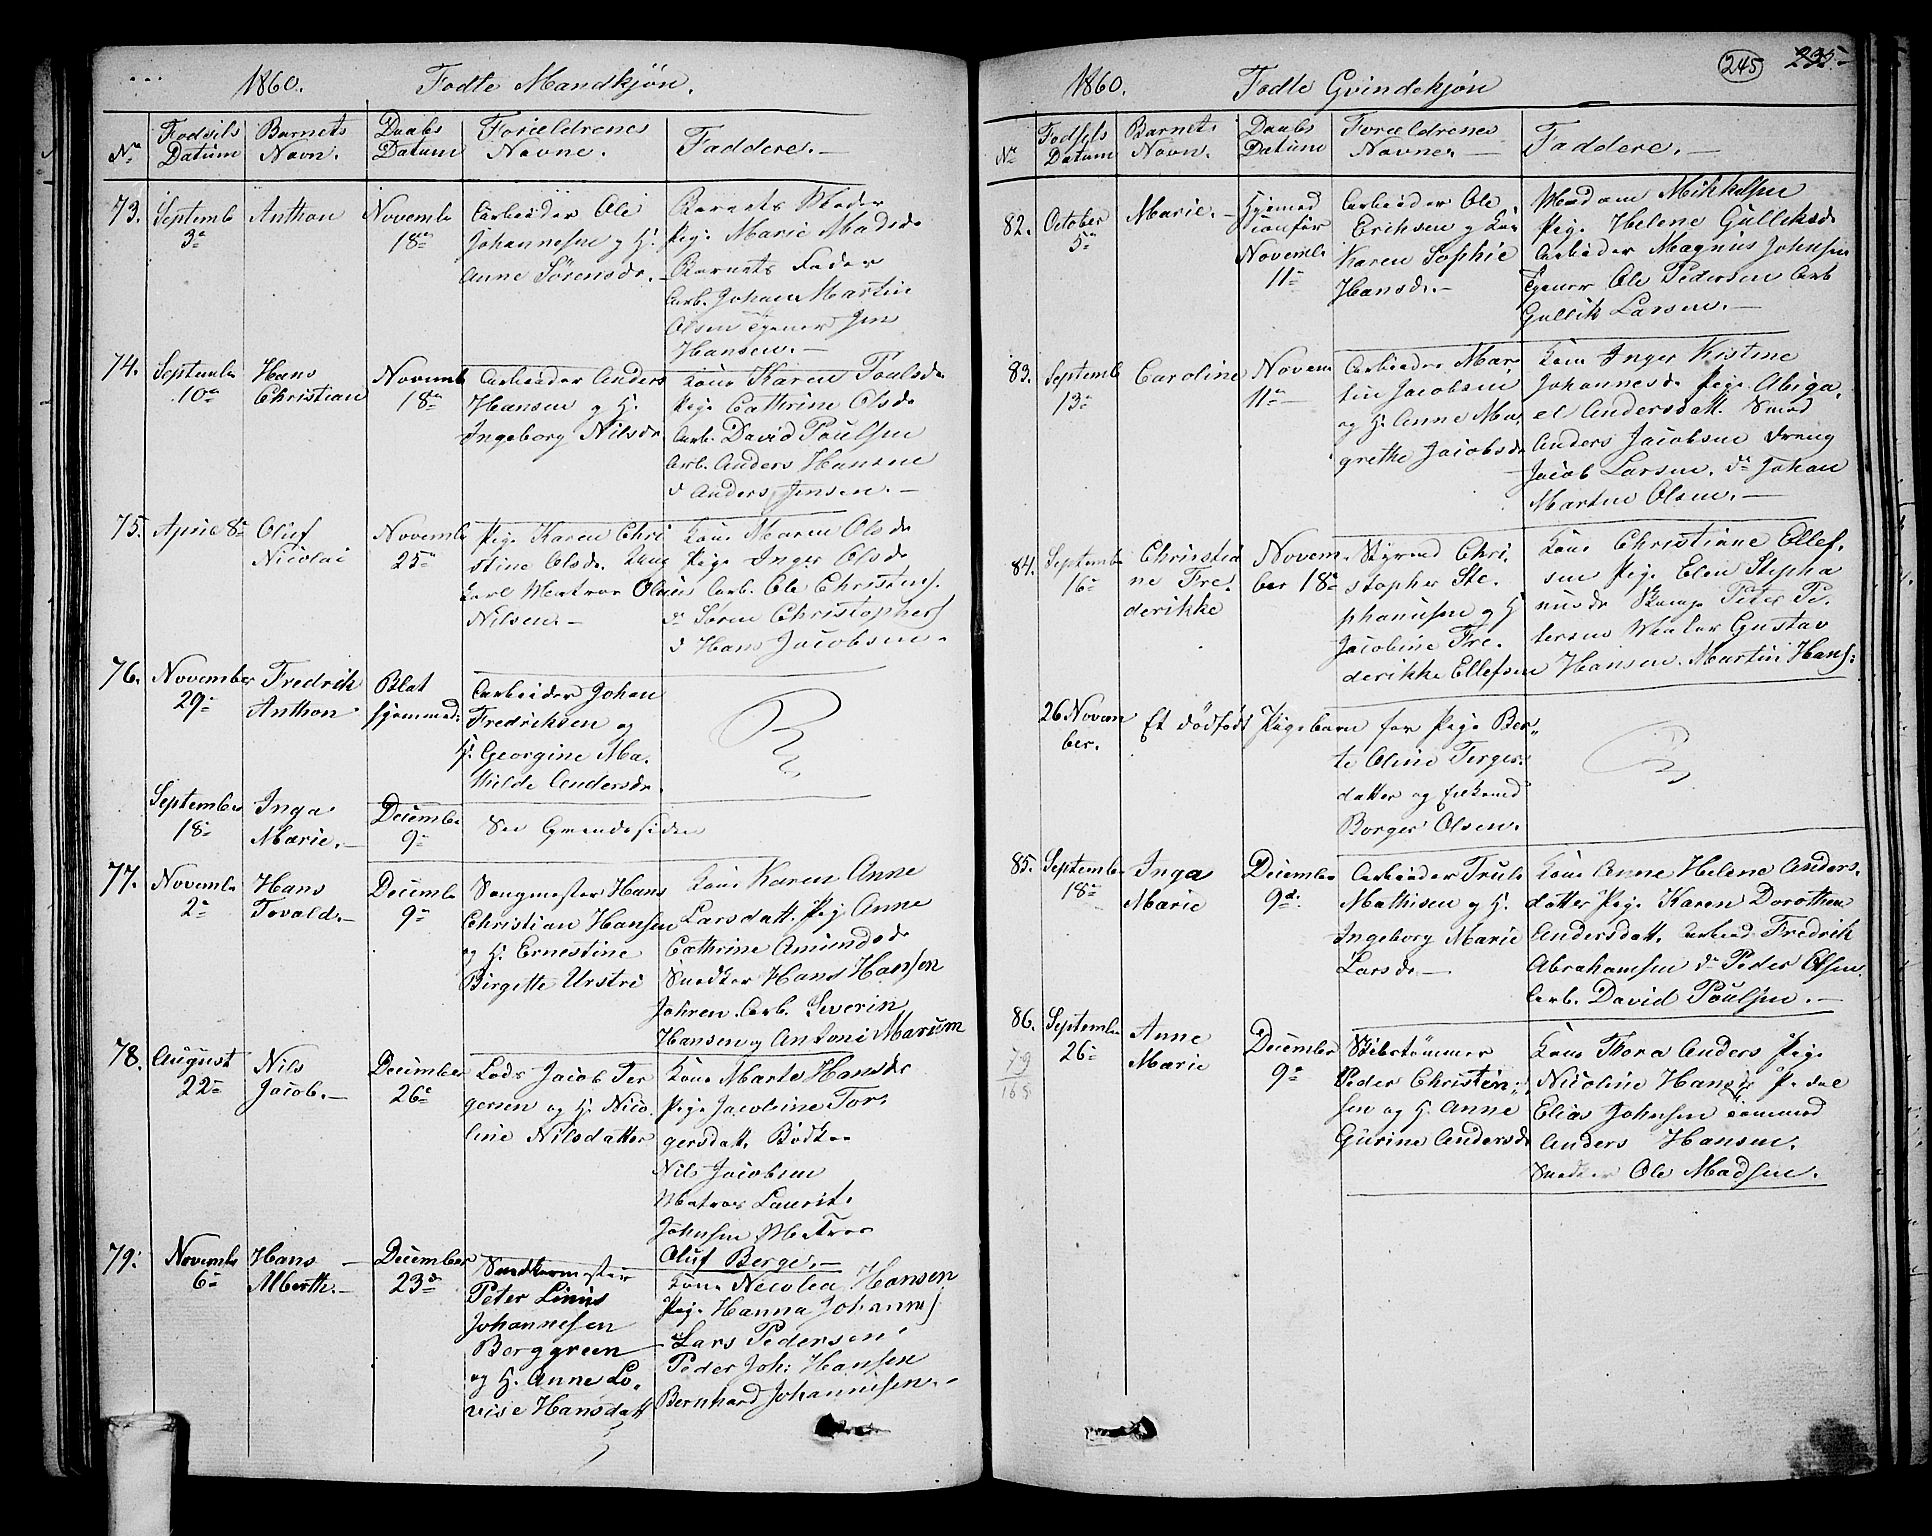 1860. Fødte Mandkjøn.
No Fødsels Datum Barnets Navn. Daabs Datum Forældrenes Navne. Faddere.—
73. Septemb 3de Anthon Novemb 18de
Arbeider Ole
Johannesen og H.
Anne Sørensdr.—
Barnets Moder
Pige Marie Madsdr
Barnets Fader
Arb. Johan Martin
Olsen Tjener Jen
Hansen.—
74. Septembr 10de Hans Christian Novemb 18de
Arbeider Anders
Hansen og H.
Ingeborg Nilsdr
Kone Karen Poulsdr
Pige Cathrine Olsdr
Arb. David Poulsen
Arb. Anders Hansen
d Anders Jensen.—
75. April 8de Oluf Nicolai Novembr 25de
Pige Karen Chri
stine Olsdr. Ung
karl Matros Olaus
Nilsen.—
Kone Maren Olsdr
Pige Inger Olsdr
Arb. Ole Christens.
do Søren Christophers
d Hans Jacobsen.
76. November 29de Fredrik Anthon Døbt hjemmed:
Arbeider Johan
Fredriksen og
H. Georgine Ma-
thilde Andersdr.
September 18de Inga Marie.— Decembr 9de
See Qvindesiden
77. Novembr 2de Hans Tovald.— Decembr 9de
Hans
Christian Hansen
og H. Ernestine
Birgitte Urstri
Kone Karen Anne
Larsdatt. Pig. Anne
Cathrine Amundsdr
Snedker Hans Hansen
Johren. Arb. Severin
Hansen og Antoni Marium
78. August 22de Nils Jacob.— December 26de
Lods Jacob Ter
gersen og H. Nico-
line Nilsdatter
Kone Marte Hansdr
Pige Jacobine Tor-
gersdatt. Bødker
Nils Jacobsen
Matros Laurits
Johnsen Matros
Oluf Berge.—
79. Novembr 6de Hans Alberth.— December 23de
Snedkermester
Peter Linus
Johannesen
Borggreen
og H. Anne Lo-
vise Hansdatt
Kone Nicolea Hansen
Pige Hanna Johanns
Lars Pedersen
Peder Joh: Hansen
Bernhard Johannesen.—
245 235
1860. Fødte Qvindekjøn
No Fødsels Datum Barnets Navn. Daabs Datum Forældrenes Navne— Faddere.—
82. October 5de Marie.— Hjemmed Novembr 11de
Arbeider Ole
Eriksen og Kone
Karen Sophie
Hansdr.—
Madam Mikkelsen
Pige Helene Gulliksdr
Arbeider Magnus Johnsen
Tjener Ole Pedersen Arb
Gullik Larsen.—
83. Septemb 13de Caroline Novem 11de
Arbeider Mar-
tin Jacobsen
og H. Anne Ma-
grethe Jacobsdr
Kone Inger Kistine
Johannesdr Pige Abiga-
el Andersdatt. Smed
Anders Jacobsen Dreng
Jacob Larsen. do Johan
Martin Olsen.—
84. Septembr 16de Christia ne Fre- derikke Novem- ber 18de
Styrmd Chri-
stopher Ste-
phanusen og H
Jacobine Fre-
derikke Ellefsen
Kone Christiane Ellef-
sen Pige Elen Stepha
nusdr Peter Pe-
tersen Maler Gustav
Hansen. Martin Hans:
26 Novem ber. Et dødfødt Pigebarn for Pige Ber-
te Oline Terges-
datter og Enkemd
Borger Olsen.
85. Septembr 18de Inga Marie Decembr 9de.
Arbeider Truls
Mathisen og H.
Ingeborg Marie
Larsdr—
Kone Anne Helene Anders-
datter Pige Karen Dorothea
Andersdatt. Arbeid Fredrik
Abrahamsen do Peder Olsen.
Arb. David Poulsen.—
86. Septembr 26de Anne Marie December 9de
79
165
Skibstømmer
Peder Christen-
sen og H. Anne
Gurine Andersdr
Kone Thora Anders Pige
Nicoline Hansdr
Elias Johnsen Sømand
Anders Hansen.
Snedker Ole Madsen.